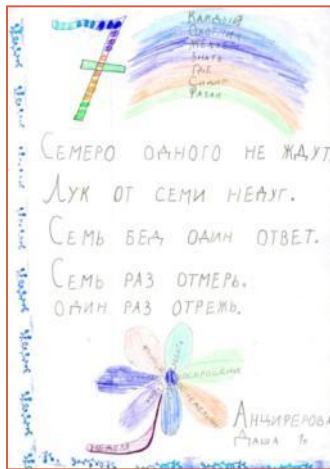 7
КАЖДЫЙ
ОХОТНИК
ЖЕЛАЕТ
ЗНАТЬ
ГДЕ
СИДИТ
ФАЗАН
СЕМЕРО ОДНОГО НЕ ЖДУТ.
ЛУК ОТ СЕМИ НЕДУГ.
СЕМЬ БЕД ОДИН ОТВЕТ.
СЕМЬ РАЗ ОТМЕРЬ.
ОДИН РАЗ ОТРЕЖЬ.
НЕДЕЛЯ
АНЦИРЕРОВА
ДАША